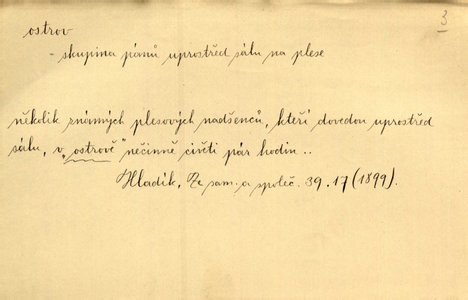 3
ostrov
- skupina pánů uprostřed sálu na plese
několik známých plesových nadšenců, kteří dovedou uprostřed
sálu, v „ostrově" nečinně civěti pár hodin..
Hladík, Ze sam. a společ. 39.17 (1899).